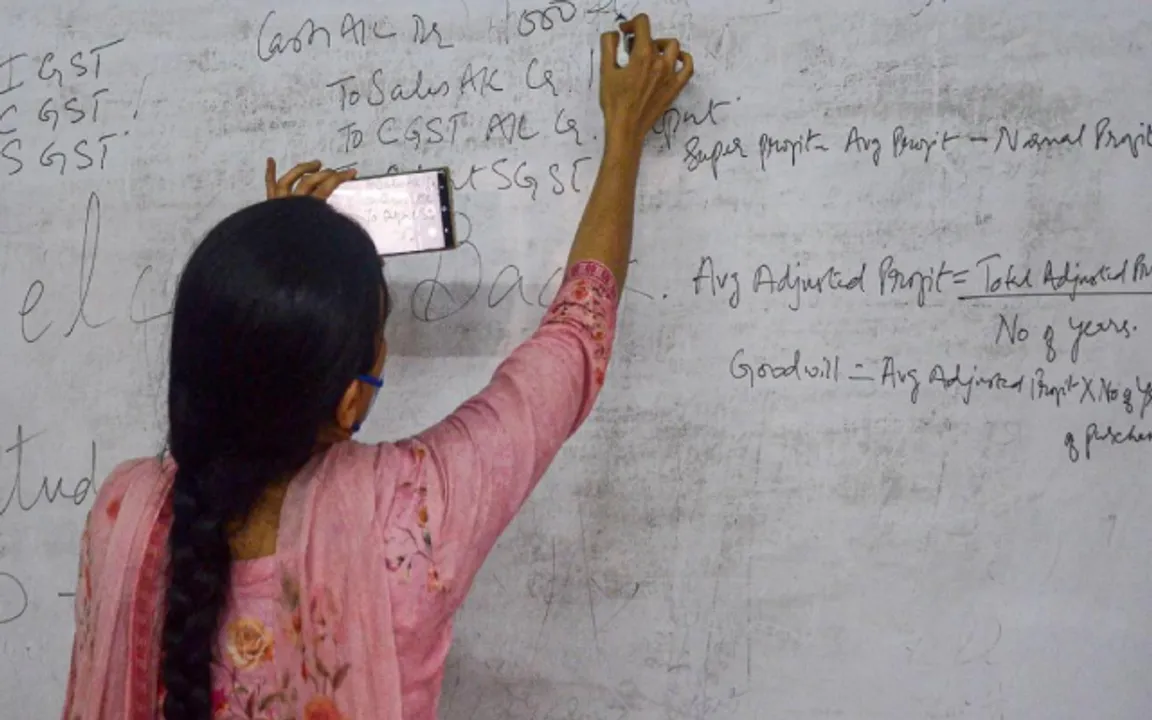 IGST
CGST
SGST
Cash A/c Dr 1000
To Sales A/c Cr.
To CGST A/c Cr.
SGST
Super profit = Avg Profit - Normal Profit
Avg Adjusted Profit = Total Adjusted Pr
No of years.
Goodwill = Avg Adjusted Profit X No of Ye
of purchas
elc Back.
tud